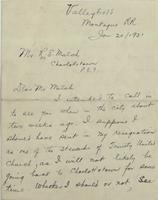 Valleyfield
Montague RR
Jan 20/1931
Mr. R. E. Mutch
Charlottetown
P.E.I
Dear Mr Mutch
I intended to call in
to see you when in the city about
two weeks ago. I suppose I
should have sent in my resignation
as one of the stewards of Trinity United
Church, as I will not likely be
going back to Charlottetown for some
time Whether I should or not,